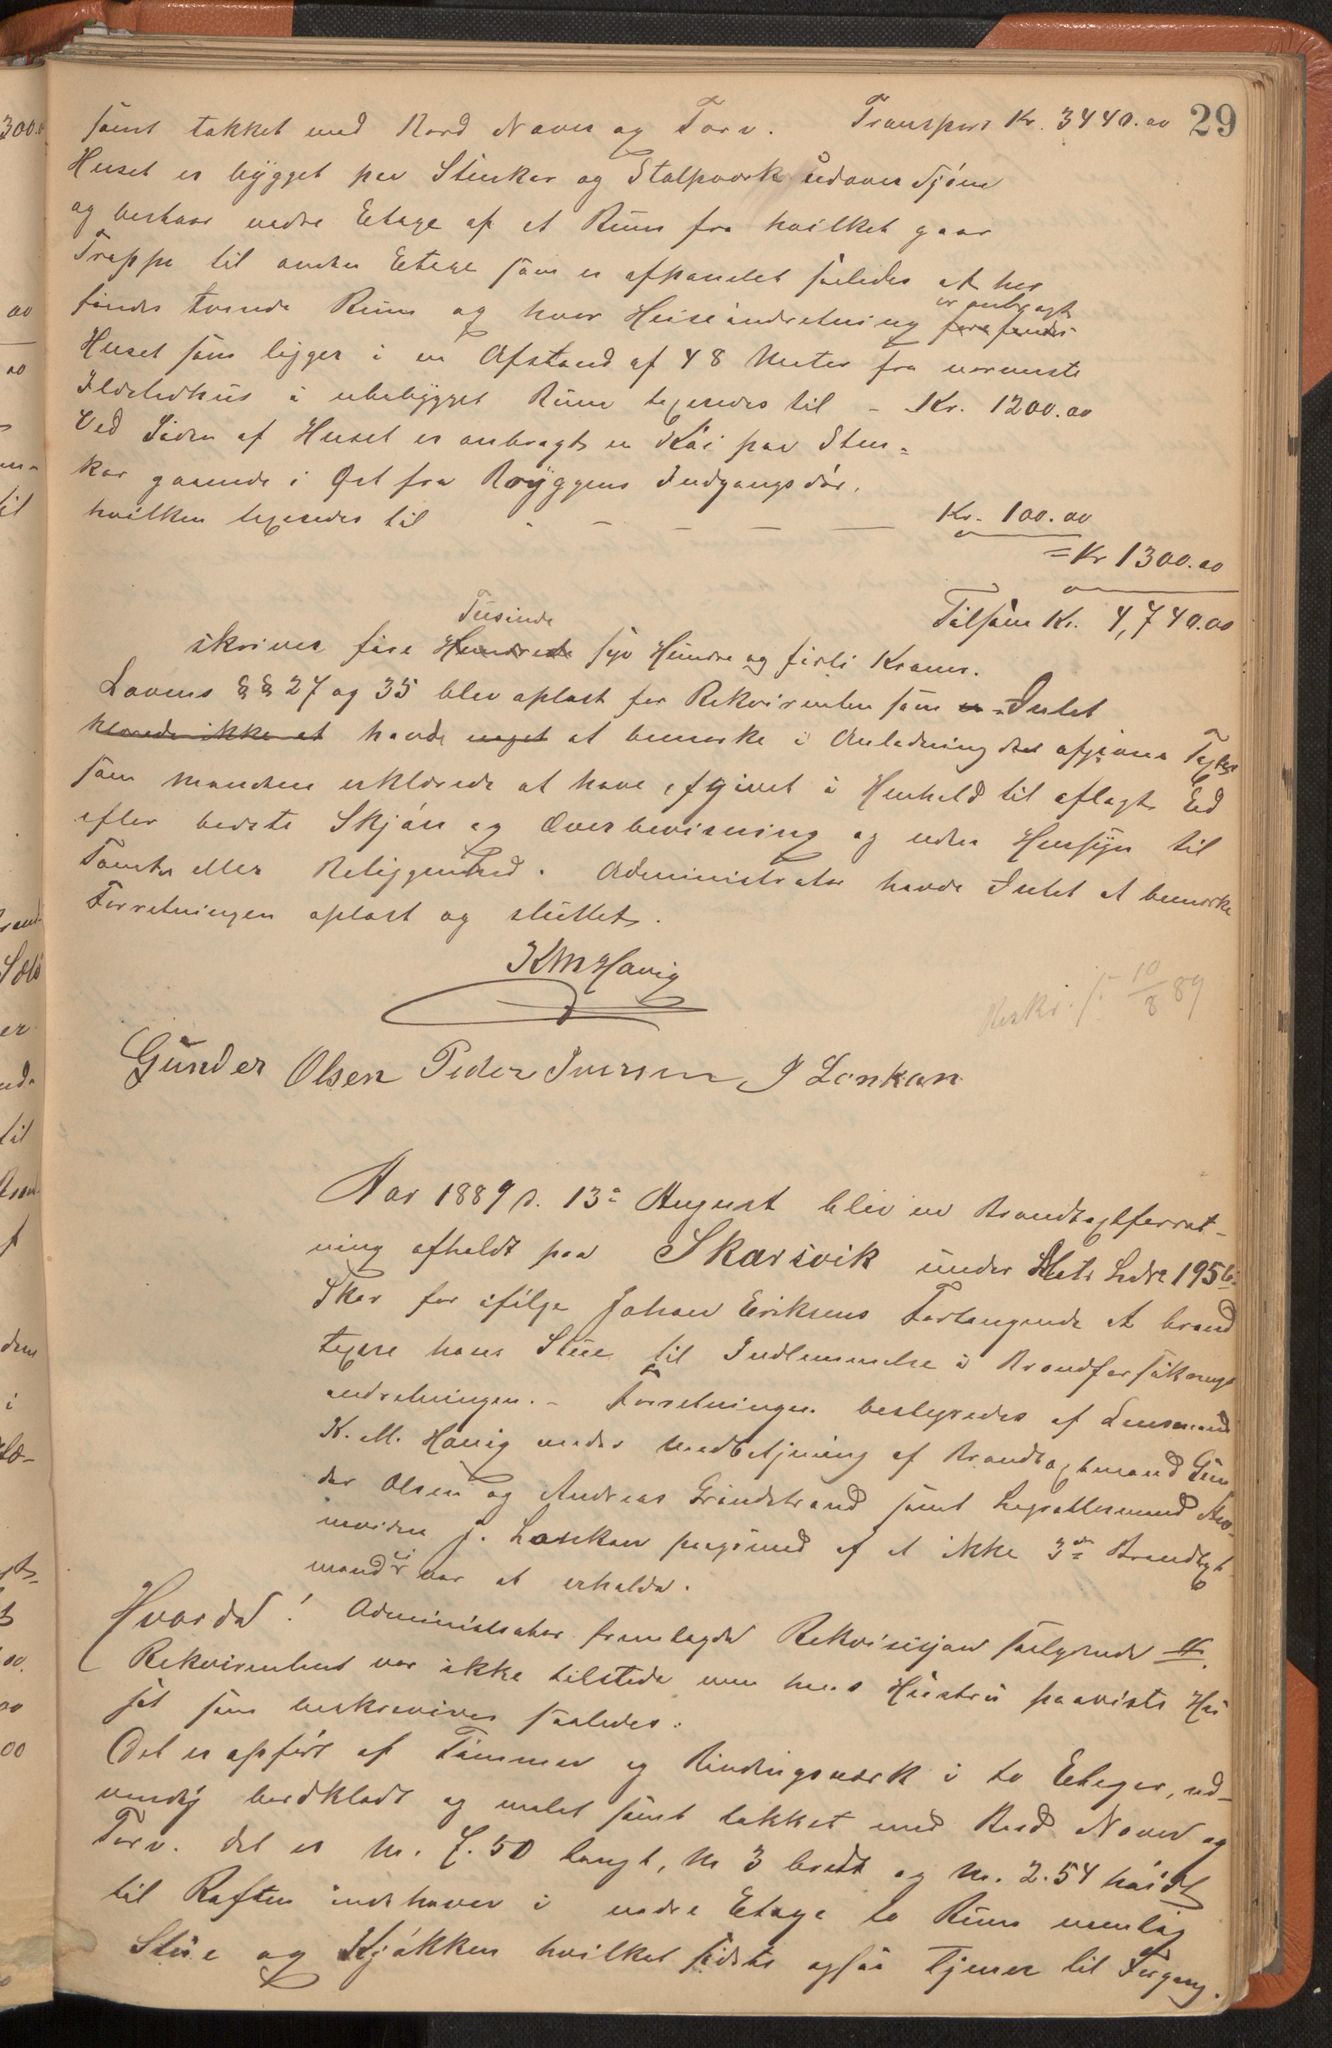 29
samt takket med Bord Næver og Torv. Transport Kr. 3440.00
Huset er bygget paa Stenkar og Stolpværk udover Sjøen
og bestaar nedre Etage af et Rum fra hvilket gaar
Trappe til anden Etage som er afpanelet saaledes at her
findes tvende Rum og hvor Heiseindretning er anbragt
Huset som ligger i en Afstand af 48 Meter fra nærmeste
Ildstedhus i ubebygget Rum taxeredes til - Kr. 1200.00
Ved Siden af Huset er anbragt en Kai paa Sten=
kar gaaende i Øst fra Bryggens Indgangsdør,
hvilken taxeredes til - - - - - Kr. 100.00
= Kr 1300.00
Tilsam Kr. 4,740.00
skriver fire Tusinde syv Hundre og firti Kroner.
Lovens §§ 27 og 35 blev oplæst for Rekvirenten som Intet
havde at bemærke i Anledning den afgivne Taxt
som Mændene erklærede at have afgivet i Henhold til aflagt Ed
efter bedste Skjøn og Overbevisning og uden Hensyn til
Tomten eller Beliggenhed. Administrator havde Intet at bemærke
Forretningen oplæst og sluttet.
KMHavig
10/8 89
Gunder Olsen Peder Iversen J Lonkan
Aar 1889 d. 13de August blev en Brandtaxtforret-
ning afholdt paa Skarsvik under Matr Lødne 195
Skar for ifølge Johan Eriksens Forlangende at brand
taxere hans Stue til Indlemmelse i Brandforsikrings
indretningen. - Forretningen bestyredes af Lensmand
K. M. Havig under Medbetjening af Brandtaxtmand Gun
der Olsen og Andreas Grindstrand samt Lagrettesmand
J. Lonkan paagrund af at ikke 3de Brandtaxt
mænd var at erholde.
Hvorda! Administrator fremlagde Rekvisisjon saalydende
Rekvirenten var ikke tilstede men hans Hustru paaviste Hu
set som beskrevives saaledes:
Det er opført af Tømmer og Bindingsværk i to Etager, ud-
vendig bordklædt og malet samt takket med Bord Næver og
Torv. det er M. 7.50 langt, M 3 bredt og M. 2.54 høidt
til Raften indehaver i nedre Etage to Rum nemlig
Stue og Kjøkken hvilket sidste ogsaa tjener til Forgang.